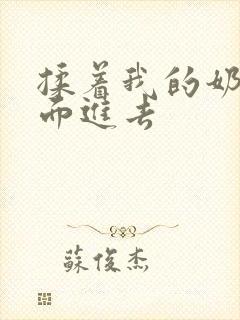 揉着我的奶
而进去
蘇俊杰